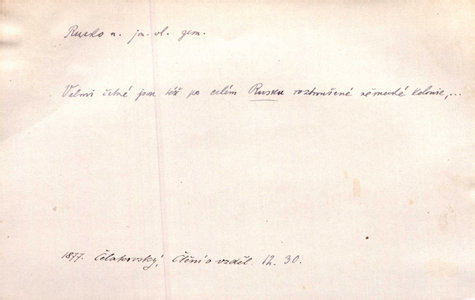 Rusko n. jm. vl. zem.
Velmi četné jsou též po celém Rusku roztroušené německé kolonie,...
1877. Čelakovský, Čtění o vzděl. 12. 30.